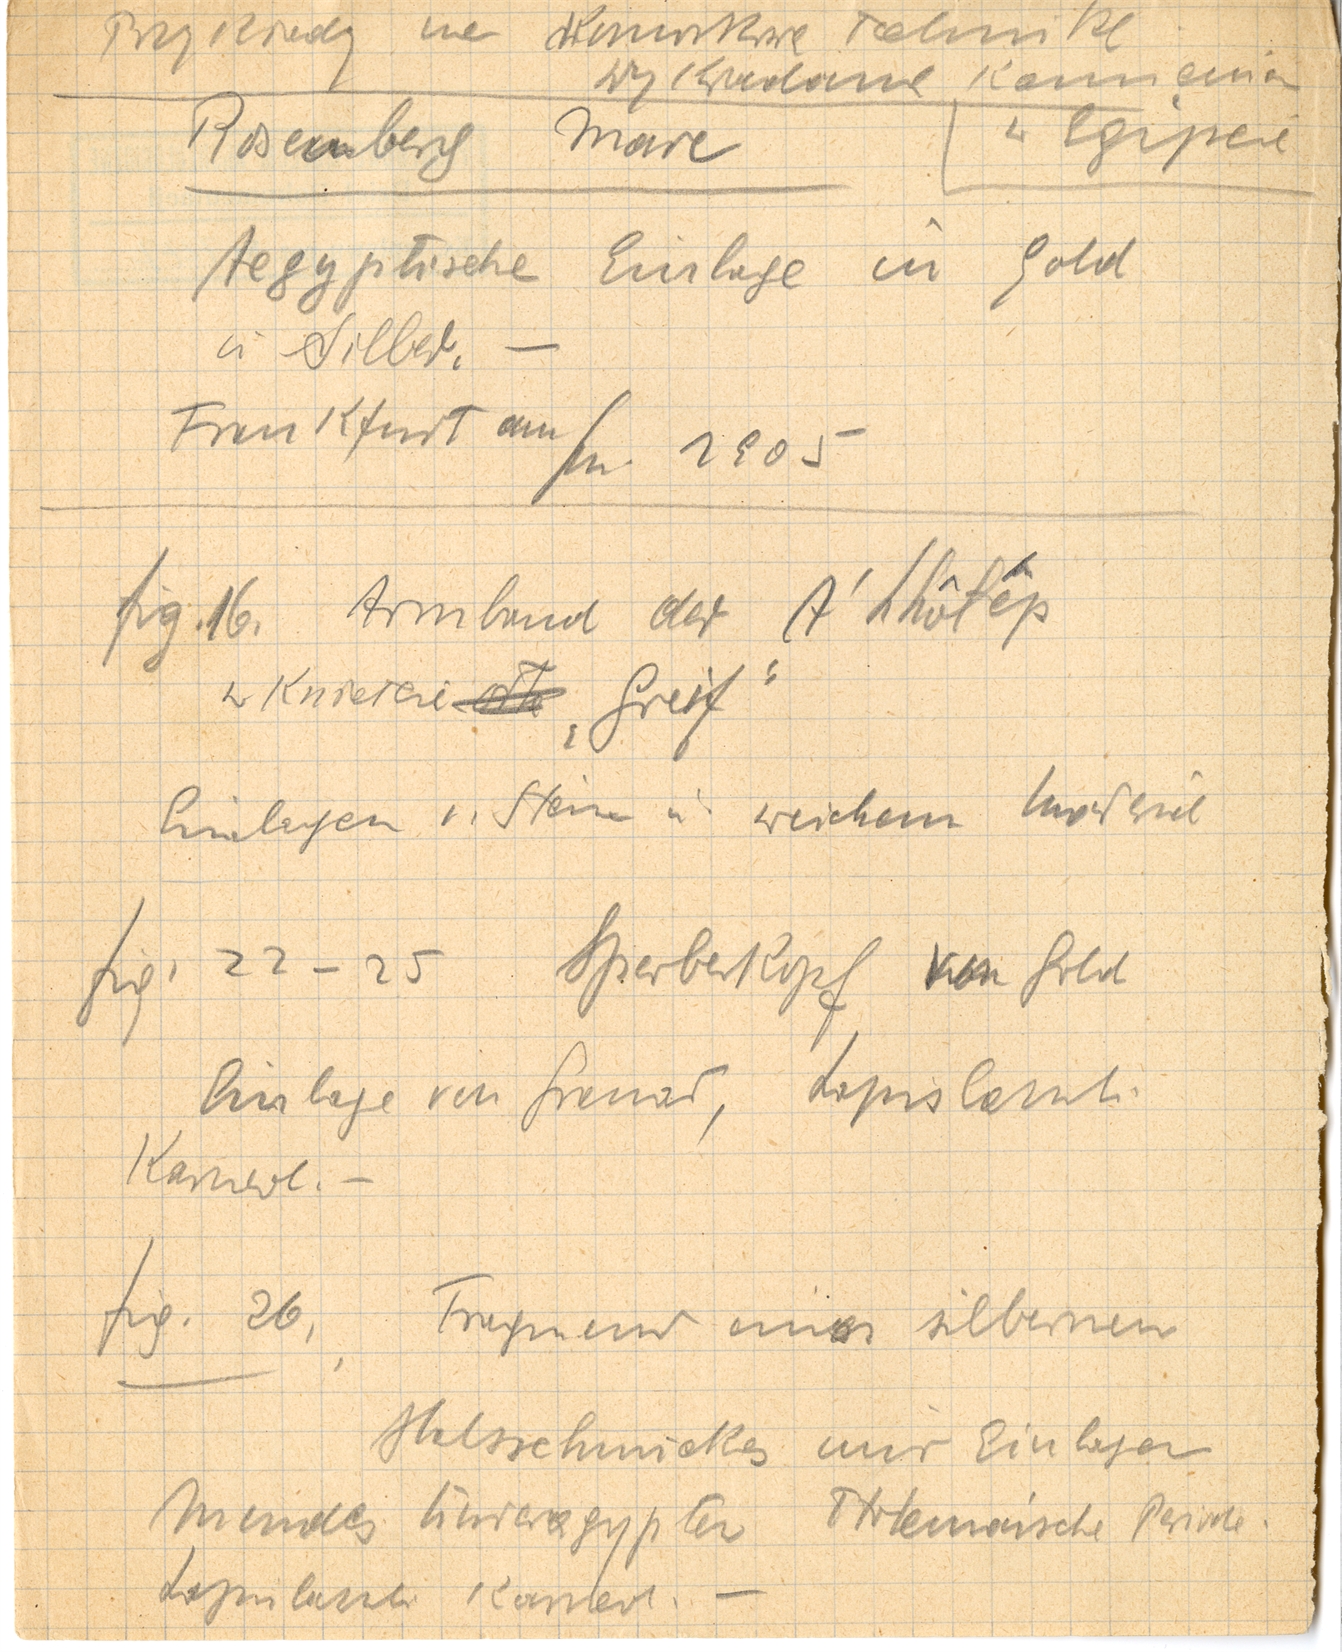 Przykłady na komórkową technikę
wykładane kamieniami
Rosenberg Marc
w Egipcie
Aegyptische Einlage in Gold
u Silber. —
Frankfurt am/M. 1905
fig. 16. Armband der A'hhôtêp
w kształcie „Greif“
Einlagen v. Stein u. weichem Material
fig. 22 – 25 Sperberkopf von Gold
Einlage von Granat, Lapislazuli
Karneol. —
fig. 26, Fragment eines silbernen
Halsschmuckes mit Einlagen
Mendes Unteraegypten Ptolemäische Periode.
Lapislazuli Karneol. —